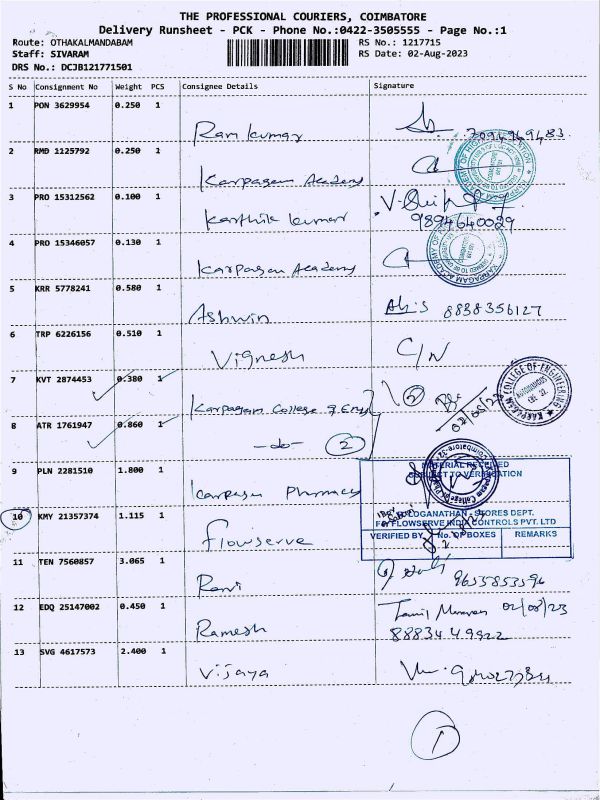 THE PROFESSIONAL COURIERS, COIMBATORE
Delivery Runsheet - PCK - Phone No.:0422-3505555 - Page No.:1
Route: OTHAKALMANDABAM RS No.: 1217715
Staff: SIVARAM RS Date: 02-Aug-2023
DRS No.: DCJB121771501
S No Consignment No Weight PCS Consignee Details Signature
1 PON 3629954 0.250 1
Ram kumar
2 RMD 1125792 0.250 1
Karpagam Academy
3 PRO 15312562 0.100 1
Karthik kumar 9894640029
4 PRO 15346057 0.130 1
Karpagam Academy
5 KRR 5778241 0.580 1
Ashwin 8838356127
6 TRP 6226156 0.510 1
Vignesh C/N
7 KVT 2874453 0.380 1
Karpagam College of Engg 2
02/08/23
KARPAGAM COLLEGE OF ENGINEERING
8 ATR 1761947 0.860 1
-do- 2
9 PLN 2281510 1.800 1
Karpagam Pharmacy
MATERIAL RECEIVED
SUBJECT TO VERIFICATION
10 KMY 21357374 1.115 1
LOGANATHAN - STORES DEPT.
FOR FLOWSERVE INDIA CONTROLS PVT. LTD
VERIFIED BY No. OF BOXES REMARKS
Flowserve
11 TEN 7560857 3.065 1
Ravi 9655853594
12 EDQ 25147002 0.450 1
02/08/23
Ramesh 8883449922
13 SVG 4617573 2.400 1
Vijaya
1